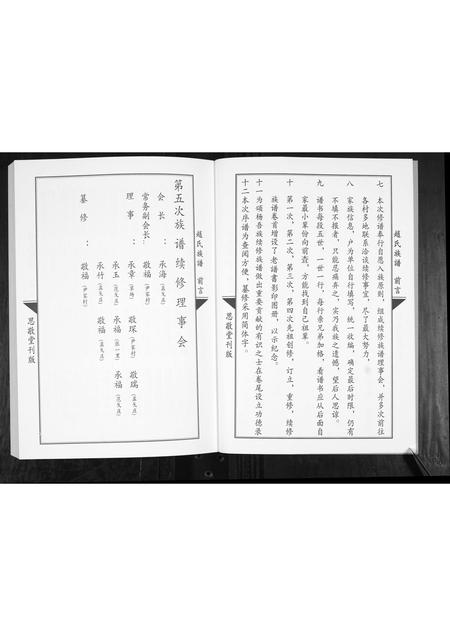 趙氏族譜 前言
思敬堂刊版
七 本次修谱奉行自愿入族原则，组成续修族谱理事会，并多次前往
各村多地联系洽谈续修事宜，尽了最大努力，
八 家族信息，户为单位自行填写，统一收编，确定最后时限，仍有
不填不报者，只能忍痛弃之，实乃我族之遗憾，望后人思谅。
九 谱书每段五世，一世一行，每行亲兄弟加格，看谱书应从后面自
家最小辈份向前查，方能找到自己祖辈。
十 第一次，第二次，第三次，第四次先祖创修，订立，重修，续修
族谱卷首增设了老譜書影印图册，以示纪念。
十一 为颂杨吾族续修族谱做出重要贡献的有识之士在卷尾设立功德录
十二 本次序谱为查阅方便，纂修采用简体字。
第五次族谱续修理事会
会长： 承海
常务副会长 敬福（尹家村）
理事： 承章 敬琛（尹家村） 敬瑞
承玉 承福 承福
承竹 敬福
纂修： 敬福（尹家村）
趙氏族譜 前言
思敬堂刊版